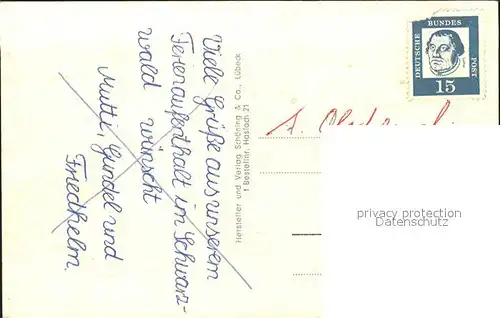 Viele Grüße aus unserem
Ferienaufenthalt im Schwarz-
wald wünscht
Mutti, Gundel und
Friedhelm.
Hersteller und Verlag Schöning & Co., Lübeck
1 Bestellnr. Haslach 21
DEUTSCHE
BUNDES
POST
15
privacy protection
Datenschutz